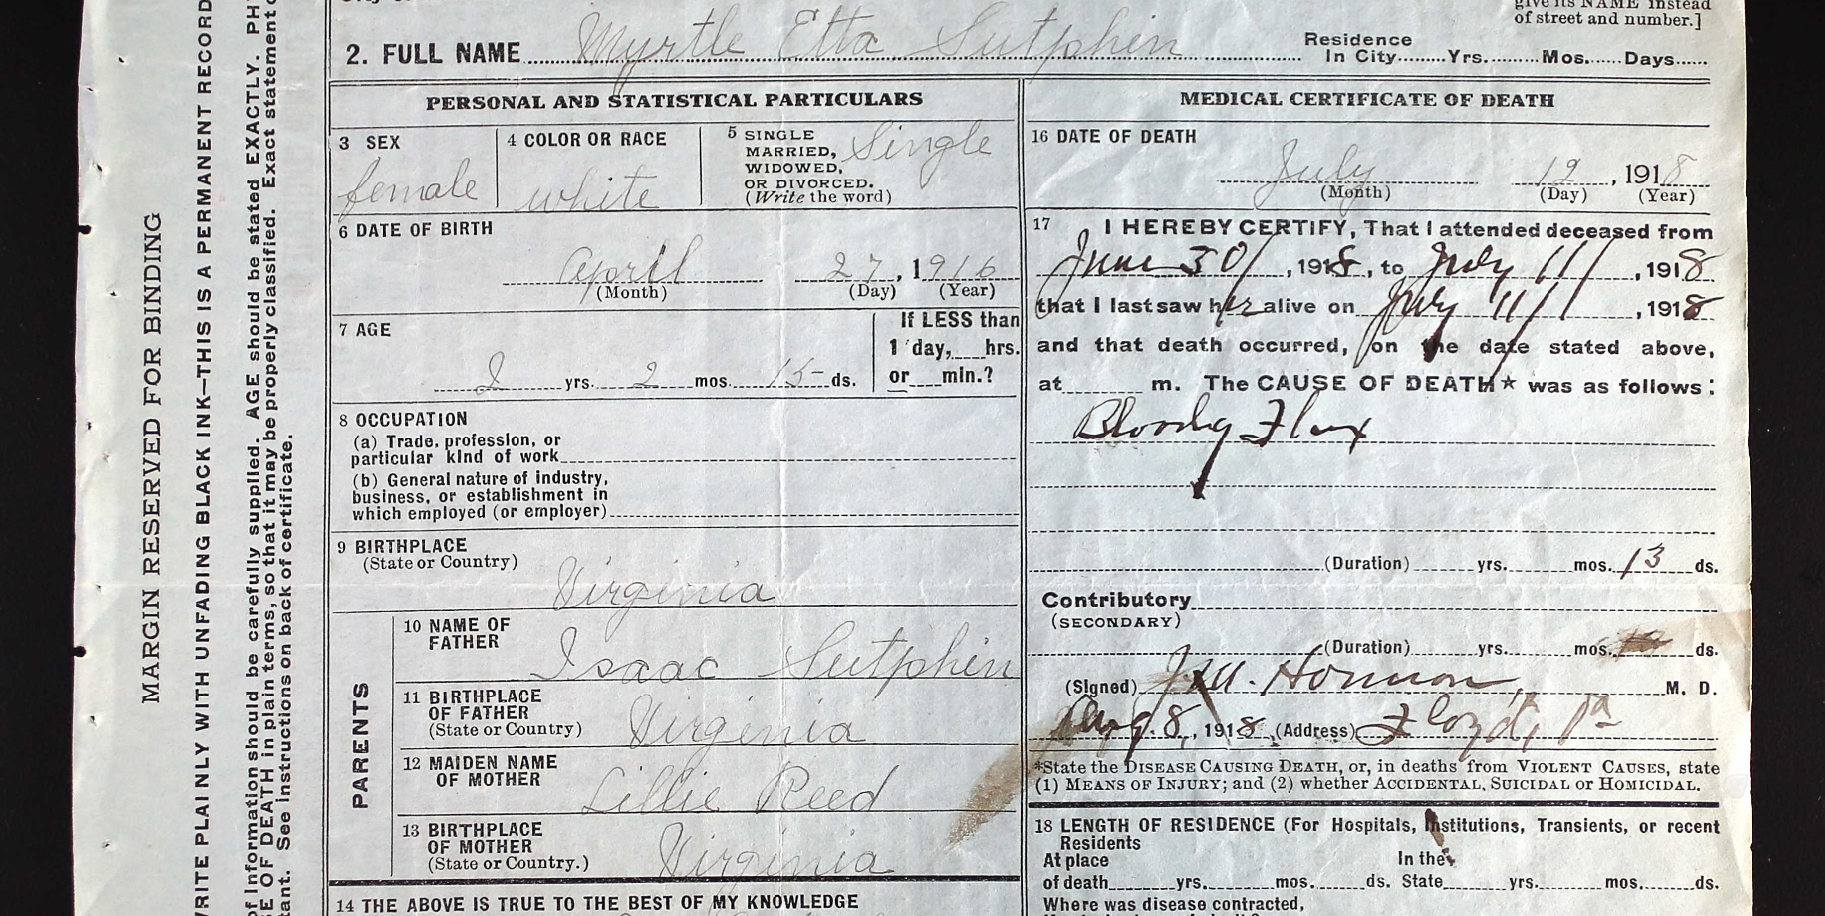 give its NAME instead
of street and number.]
2. FULL NAME Myrtle Etta Sutphin
Residence
In City Yrs. Mos. Days
PERSONAL AND STATISTICAL PARTICULARS
3 SEX
female
4 COLOR OR RACE
white
5 SINGLE
MARRIED,
WIDOWED,
OR DIVORCED.
(Write the word)
Single
6 DATE OF BIRTH
April 27, 1916
(Month) (Day) (Year)
7 AGE
2 yrs. 2 mos. 15 ds.
If LESS than
1 day, hrs.
or min.?
8 OCCUPATION
(a) Trade, profession, or
particular kind of work
(b) General nature of industry,
business, or establishment in
which employed (or employer)
9 BIRTHPLACE
(State or Country)
Virginia
PARENTS
10 NAME OF
FATHER
Isaac Sutphin
11 BIRTHPLACE
OF FATHER
(State or Country)
Virginia
12 MAIDEN NAME
OF MOTHER
Lillie Reed
13 BIRTHPLACE
OF MOTHER
(State or Country.)
Virginia
14 THE ABOVE IS TRUE TO THE BEST OF MY KNOWLEDGE
MEDICAL CERTIFICATE OF DEATH
16 DATE OF DEATH
July 12, 1918
(Month) (Day) (Year)
17 I HEREBY CERTIFY, That I attended deceased from
June 30/, 1918, to July 11/, 1918
that I last saw her alive on July 11/, 1918
and that death occurred, on the date stated above,
at m. The CAUSE OF DEATH* was as follows:
Bloody Flux
(Duration) yrs. mos. 13 ds.
Contributory
(SECONDARY)
(Duration) yrs. mos. ds.
(Signed) M. D.
Aug. 8, 1918 (Address) Floyd, Va
*State the DISEASE CAUSING DEATH, or, in deaths from VIOLENT CAUSES, state
(1) MEANS OF INJURY; and (2) whether ACCIDENTAL, SUICIDAL or HOMICIDAL.
18 LENGTH OF RESIDENCE (For Hospitals, Institutions, Transients, or recent
Residents
At place In the
of death yrs. mos. ds. State yrs. mos. ds.
Where was disease contracted,
MARGIN RESERVED FOR BINDING
WRITE PLAINLY WITH UNFADING BLACK INK—THIS IS A PERMANENT RECORD
of Information should be carefully supplied. AGE should be stated EXACTLY. PHY
SE OF DEATH in plain terms, so that it may be properly classified. Exact statement o
tant. See instructions on back of certificate.